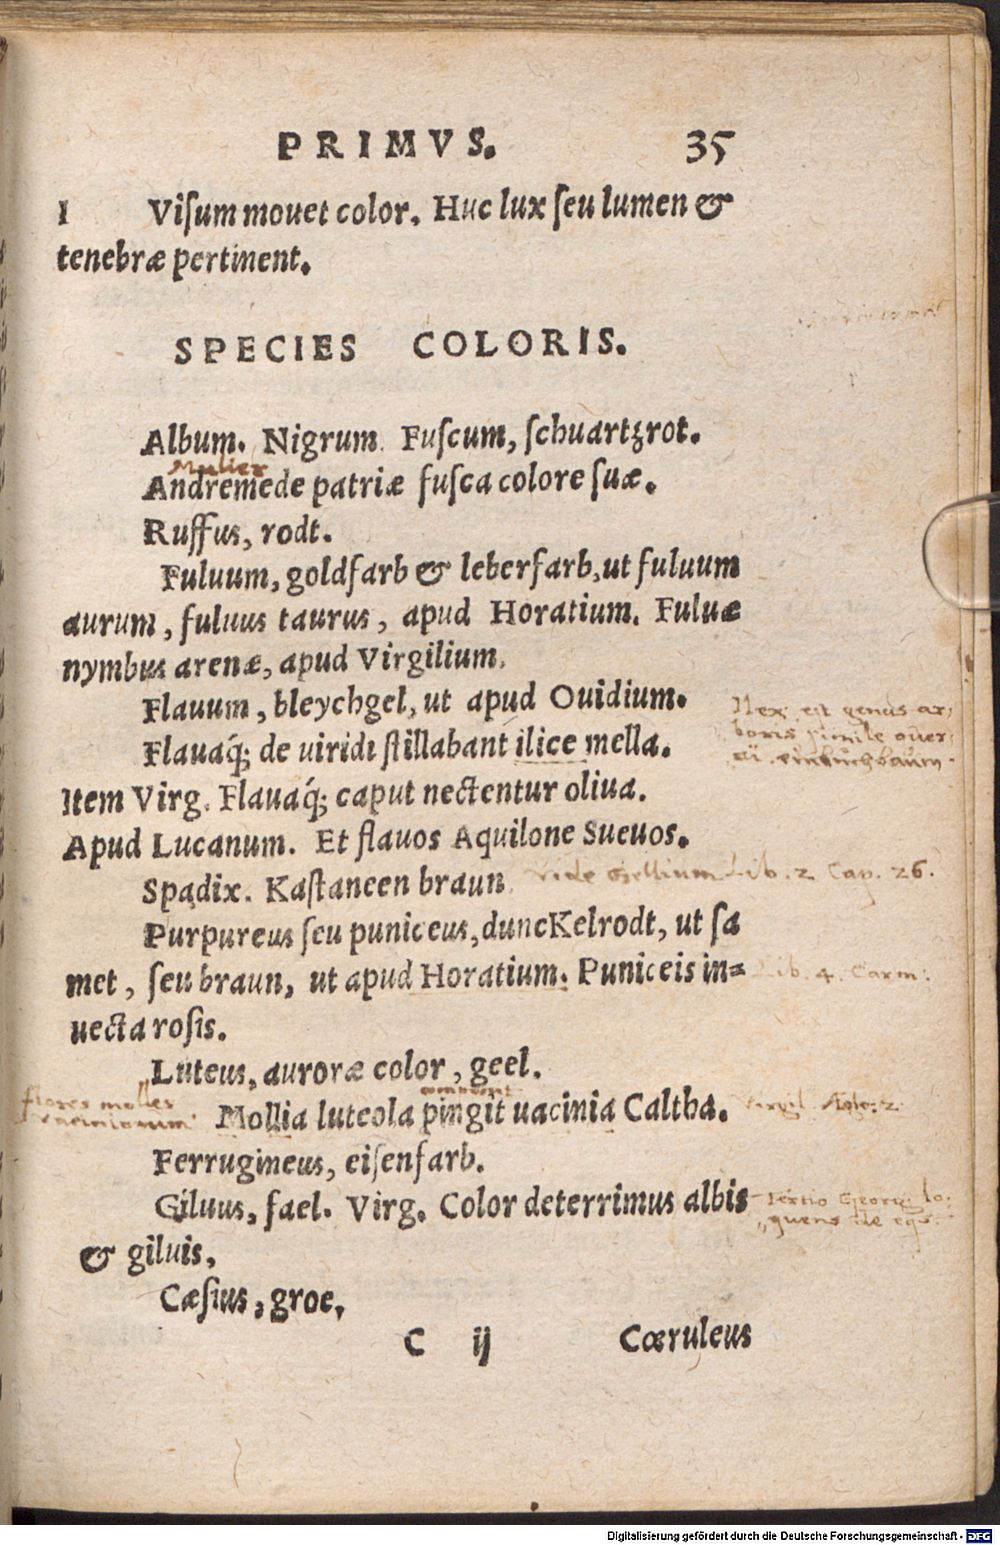 PRIMVS. 35
I Viſum mouet color. Huc lux ſeu lumen &
tenebræ pertinent.
SPECIES COLORIS.
Album. Nigrum. Fuſcum, ſchuartzrot.
Mulier
Andremede patriæ fuſca colore ſuæ.
Ruffus, rodt.
Fuluum, goldfarb & leberfarb, ut fuluum
aurum, fuluus taurus, apud Horatium. Fuluæ
nymbus arenæ, apud Virgilium.
Flauum, bleychgel, ut apud Ouidium.
Ilex est genus ar,
boris simile quer,
cui. ein buchsbaum.
Flauaq́; de uiridi ſtillabant ilice mella.
Item Virg. Flauaq́; caput nectentur oliua.
Apud Lucanum. Et flauos Aquilone Sueuos.
Spadix. Kaſtaneen braun. vide Gellium Lib. 2 Cap. 26.
Purpureus ſeu puniceus, duncKelrodt, ut ſa
met, ſeu braun, ut apud Horatium. Puniceis in= Lib. 4. Carm:
uecta roſis.
Luteus, auroræ color, geel.
flores molles
vaciniorum
Mollia luteola pingit uacinia Caltha. Virgil Aglo: 2
Ferrugineus, eiſenfarb.
Giluus, fael. Virg. Color deterrimus albis
tertio Georg: lo,
quens de eqs.
& giluis,
Cæſius, groe.
C ij Cœruleus
Digitalisierung gefördert durch die Deutsche Forschungsgemeinschaft - DFG